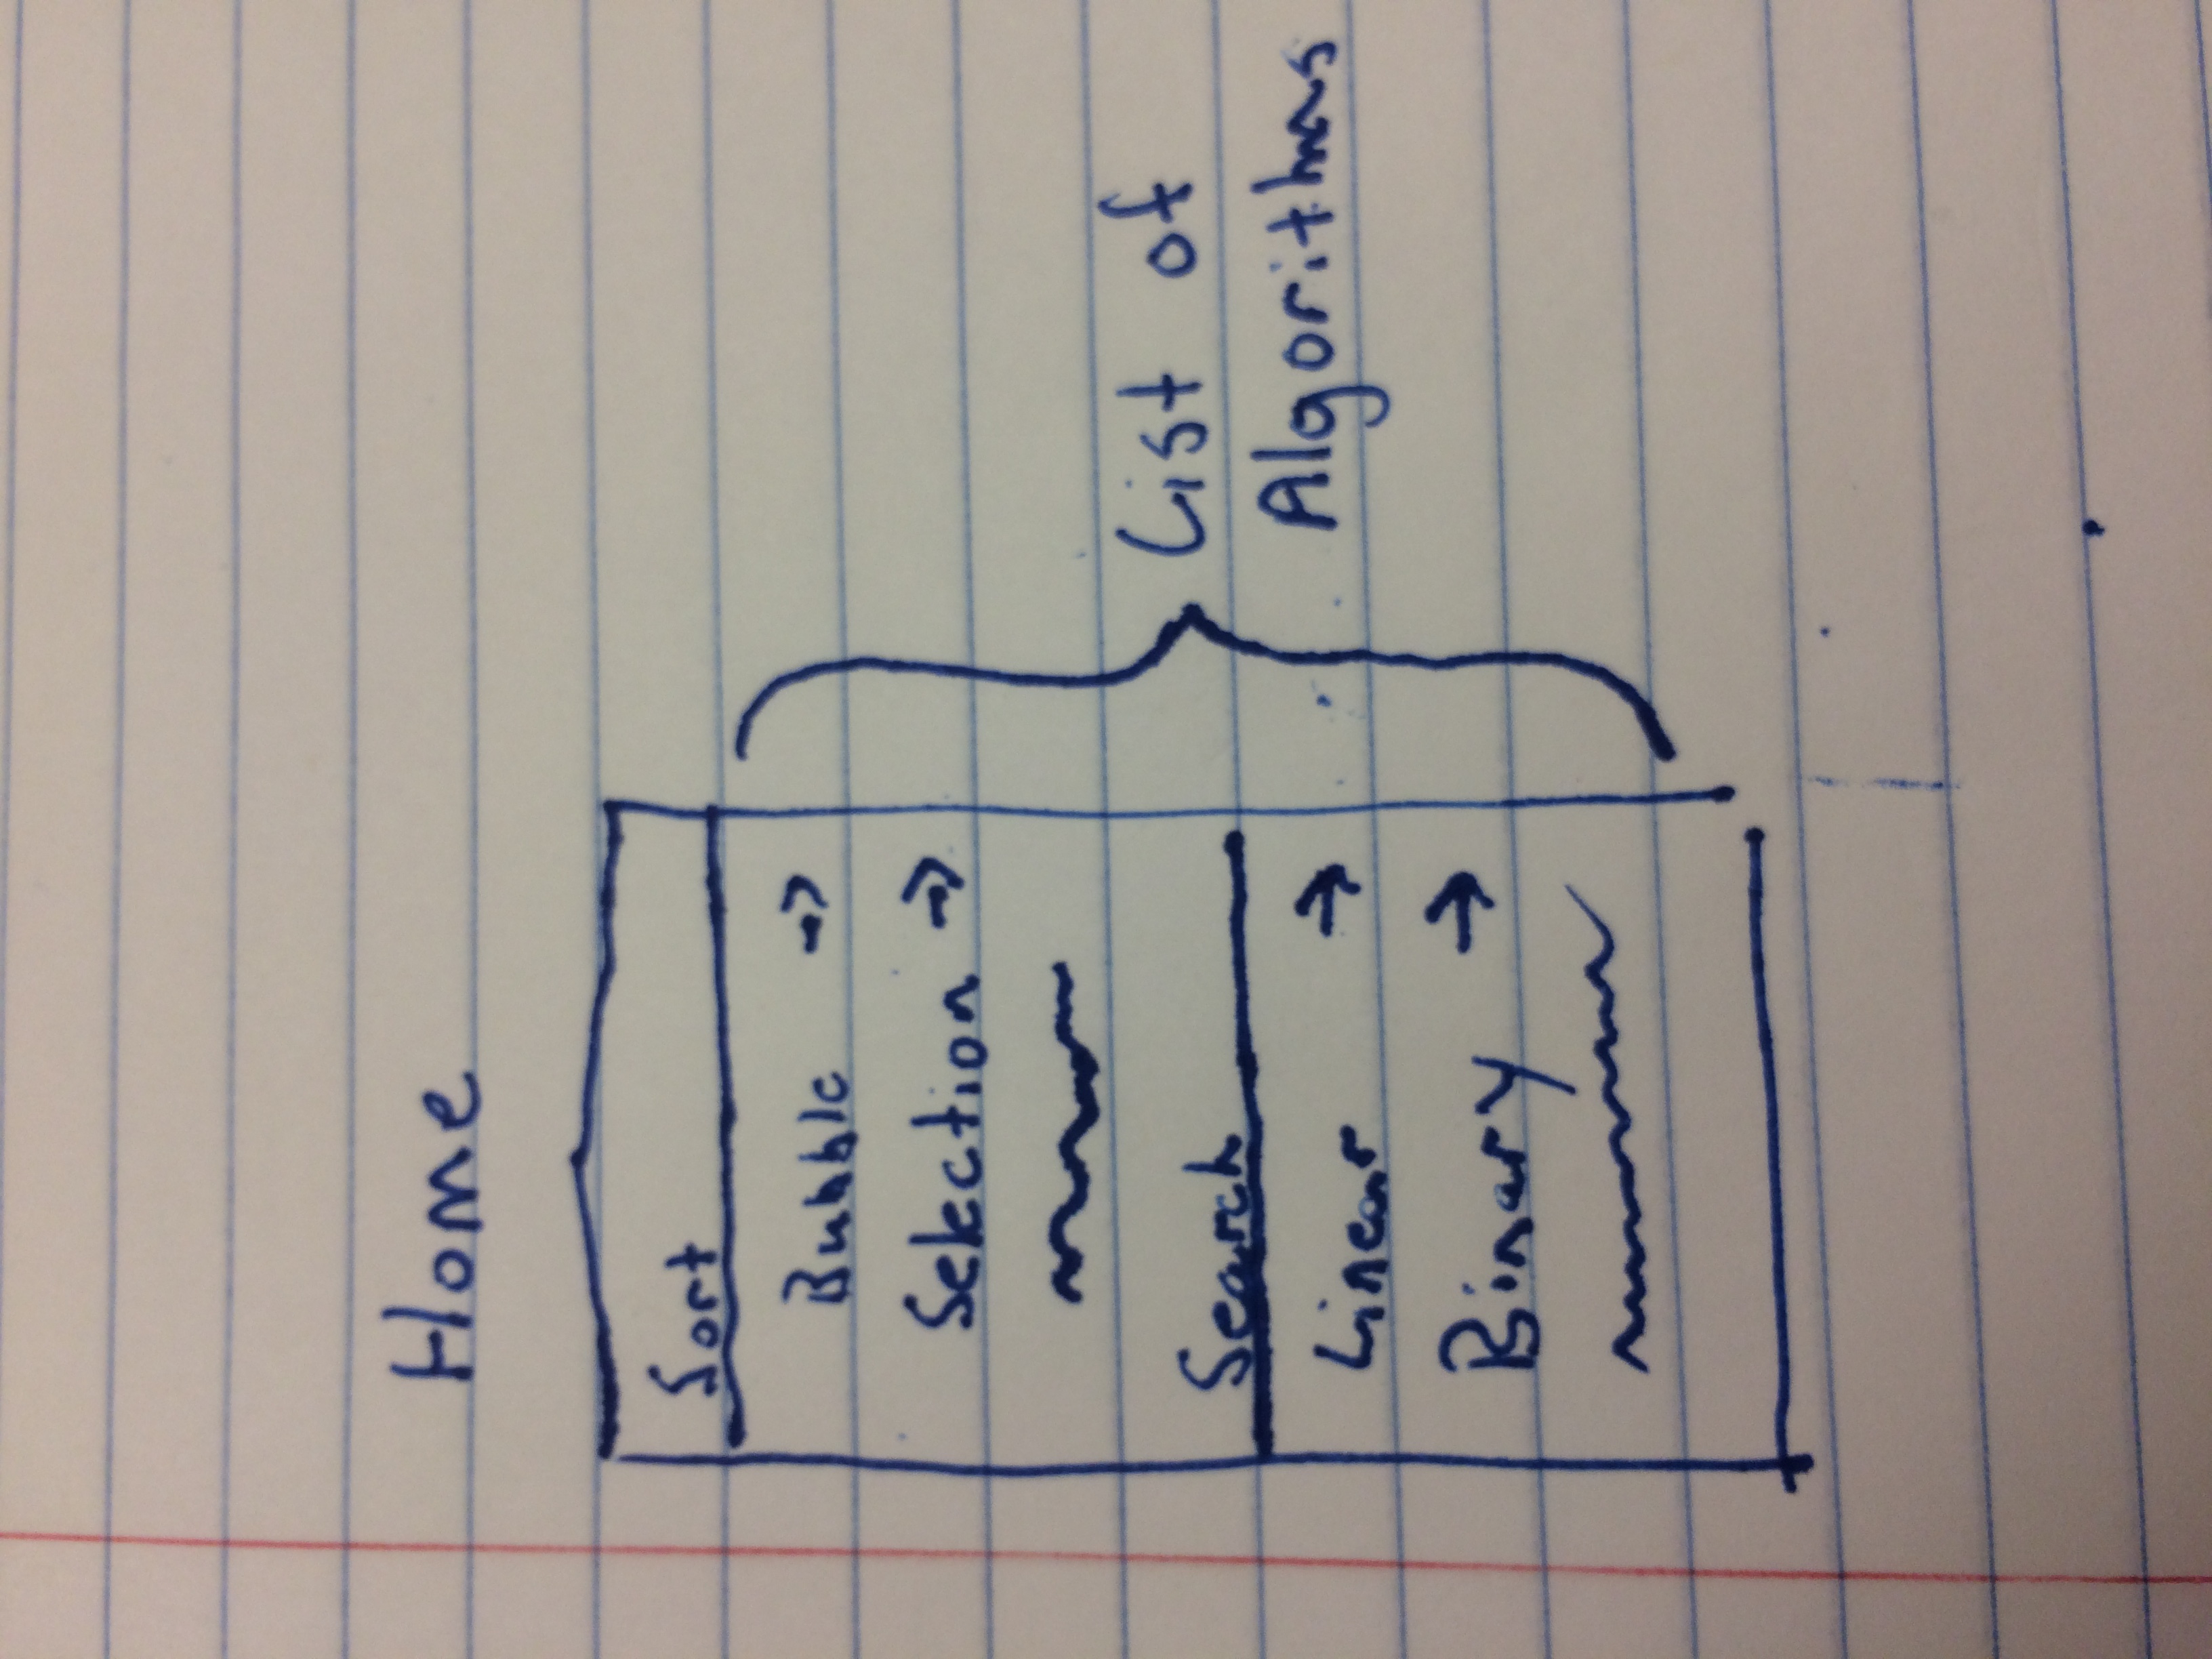 Home
Sort
Bubble →
Selection →
Search
Linear →
Binary →
List of
Algorithms